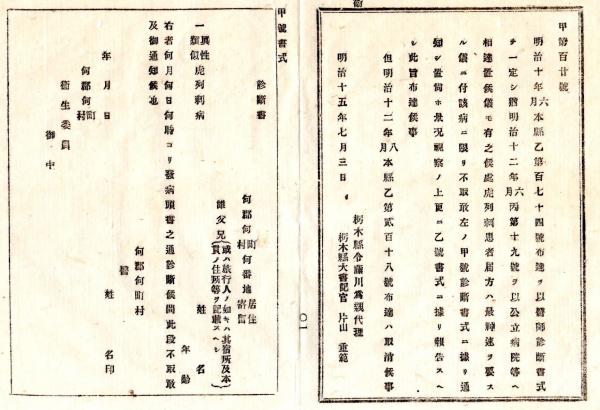 甲第百廿號
明治十年六月本縣乙第百七十四號布達ヲ以醫師診斷書式
チ一定シ猶明治十二年六月丙第十九號ヲ以公立病院等ヘ
相達置候儀モ有之候處虎列剌患者屆方ハ最神速ヲ要ス
ル儀ニ付該病ニ限リ不取敢左ノ甲號診斷書式ニ據リ通
知シ置尚ホ景況視察ノ上更ニ乙號書式ニ據リ報告スヘ
シ此旨布達候事
但明治十二年八月本縣乙第貳百十八號布達ハ取消候事
明治十五年七月三日
栃木縣令藤川爲親代理
栃木縣大書記官 片山重範
〇一
甲號書式
診斷書
何郡何町村何番地居住寄留
誰父兄(或ハ旅行人ノ如キハ其宿所及本貫ノ住所等ヲ記載スヘシ)
姓名
年齡
一眞性類似虎列剌病
右者何月何日何時ヨリ發病頭書之通診斷候間此段不取敢
及御通知候也
何郡何町村
醫
年月日 姓名印
何郡何町村
衞生委員
御中